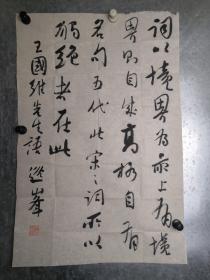 词以境界为最上有境
界则自成高格自有
名句五代北宋之词所以
独绝者在此
王國維先生語 遜峯